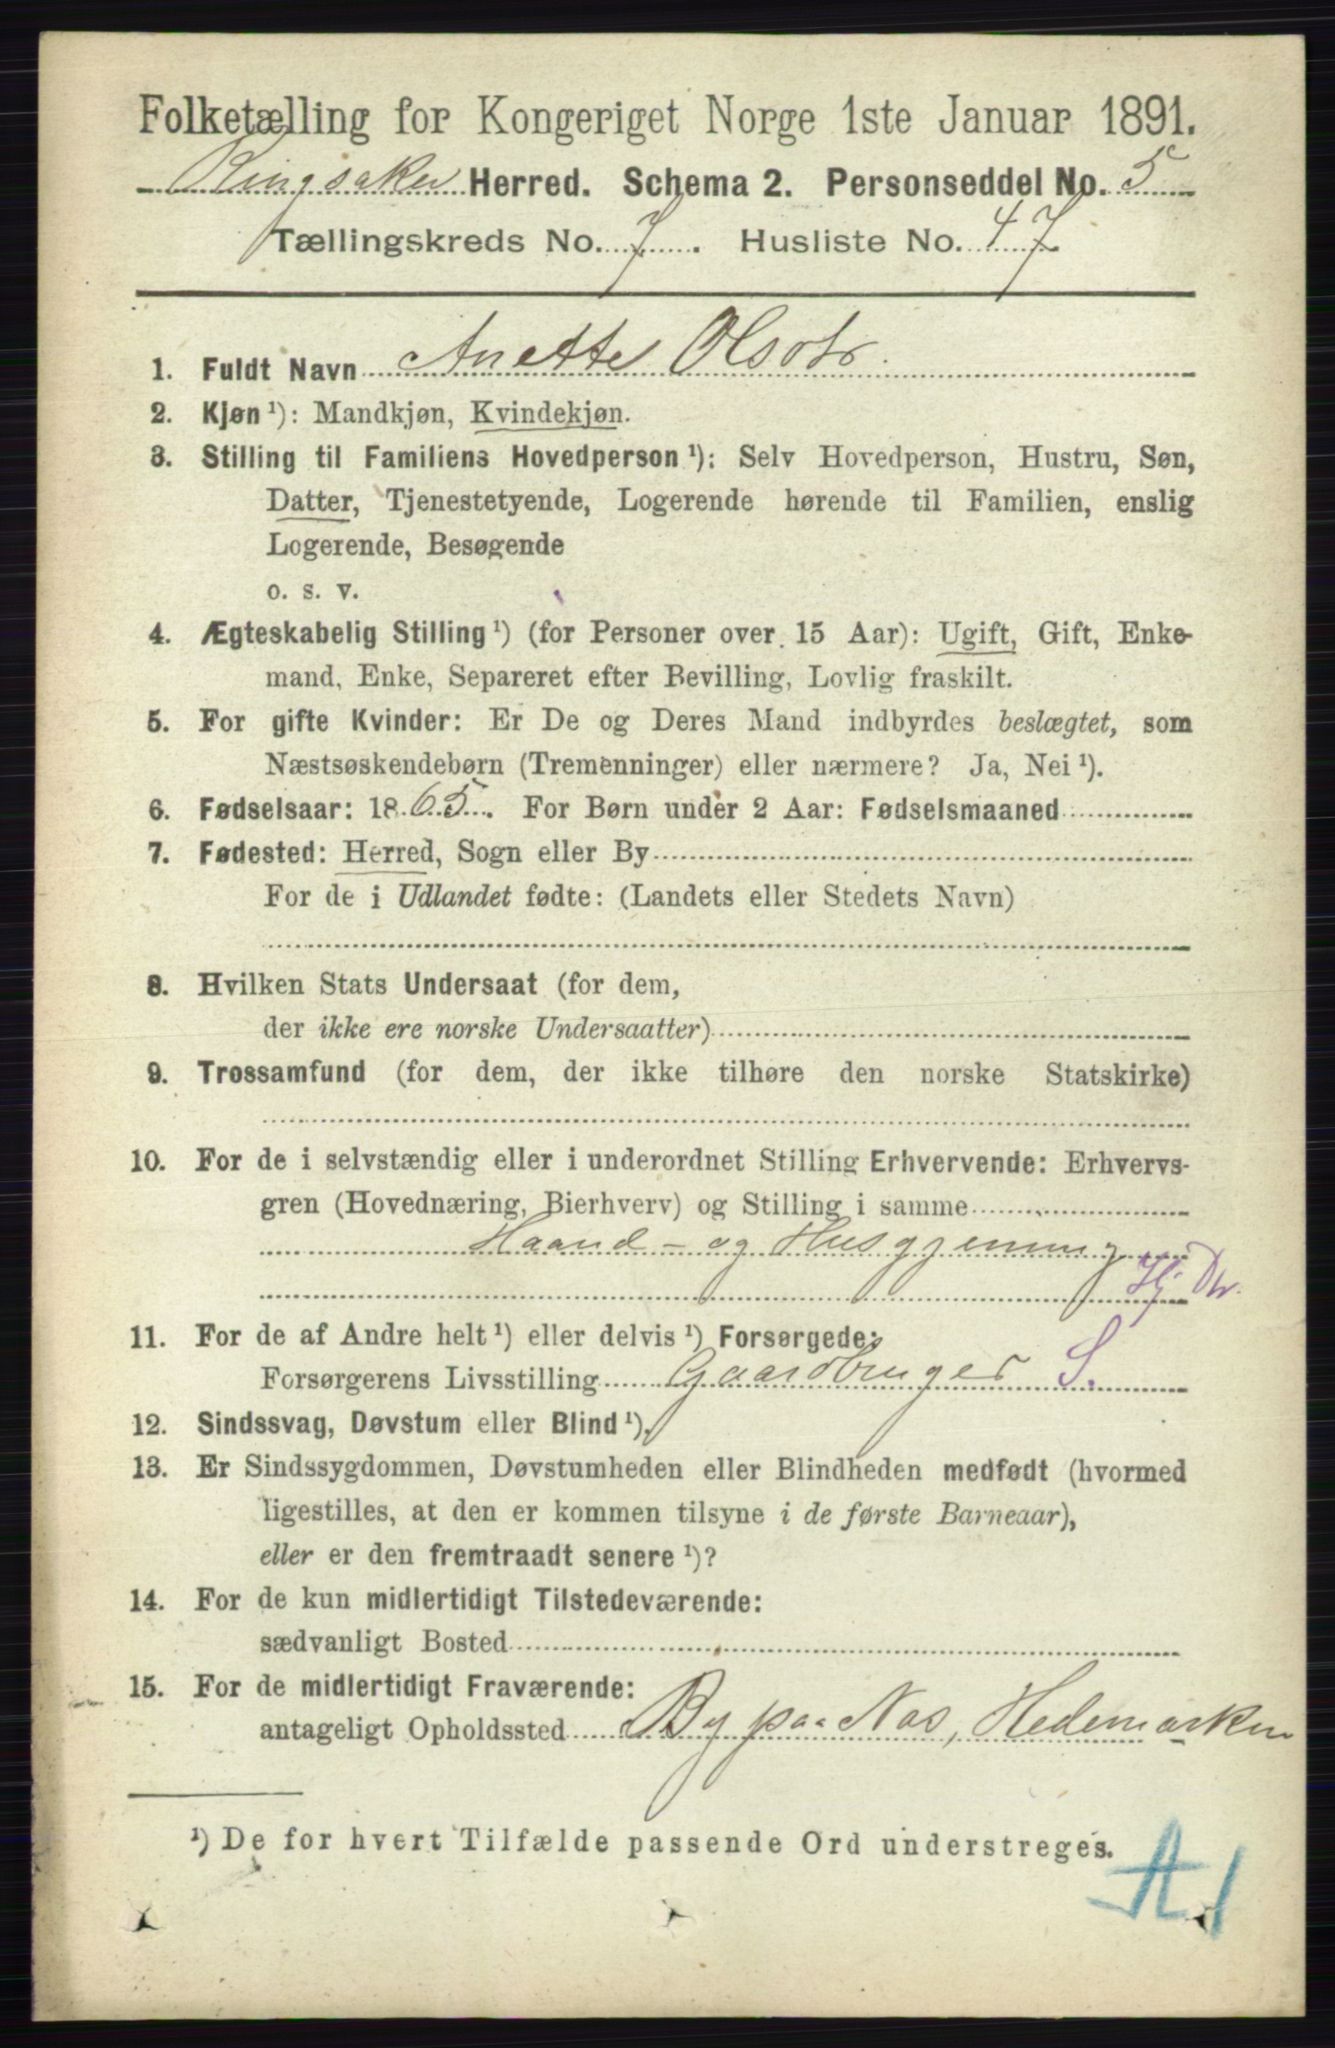 Folketælling for Kongeriget Norge 1ste Januar 1891.
Ringsaker Herred. Schema 2. Personseddel No. 5
Tællingskreds No. 7. Husliste No. 47
1. Fuldt Navn Anette Olsdtr.
2. Kjøn ¹): Mandkjøn, Kvindekjøn.
3. Stilling til Familiens Hovedperson ¹): Selv Hovedperson, Hustru, Søn,
Datter, Tjenestetyende, Logerende hørende til Familien, enslig
Logerende, Besøgende
o. s. v.
4. Ægteskabelig Stilling ¹) (for Personer over 15 Aar): Ugift, Gift, Enke-
mand, Enke, Separeret efter Bevilling, Lovlig fraskilt.
5. For gifte Kvinder: Er De og Deres Mand indbyrdes beslægtet, som
Næstsøskendebørn (Tremenninger) eller nærmere? Ja, Nei ¹).
6. Fødselsaar: 1865. For Børn under 2 Aar: Fødselsmaaned
7. Fødested: Herred, Sogn eller By
For de i Udlandet fødte: (Landets eller Stedets Navn)
8. Hvilken Stats Undersaat (for dem,
der ikke ere norske Undersaatter)
9. Trossamfund (for dem, der ikke tilhøre den norske Statskirke)
10. For de i selvstændig eller i underordnet Stilling Erhvervende: Erhvervs-
gren (Hovednæring, Bierhverv) og Stilling i samme
Haand- og Husgjerning
Hj Dtr.
11. For de af Andre helt ¹) eller delvis ¹) Forsørgede:
Forsørgerens Livsstilling Gaardbruger S.
12. Sindssvag, Døvstum eller Blind ¹).
13. Er Sindssygdommen, Døvstumheden eller Blindheden medfødt (hvormed
ligestilles, at den er kommen tilsyne i de første Barneaar),
eller er den fremtraadt senere ¹)?
14. For de kun midlertidigt Tilstedeværende:
sædvanligt Bosted
15. For de midlertidigt Fraværende:
antageligt Opholdssted By paa Nes, Hedemarken
¹) De for hvert Tilfælde passende Ord understreges.
A1